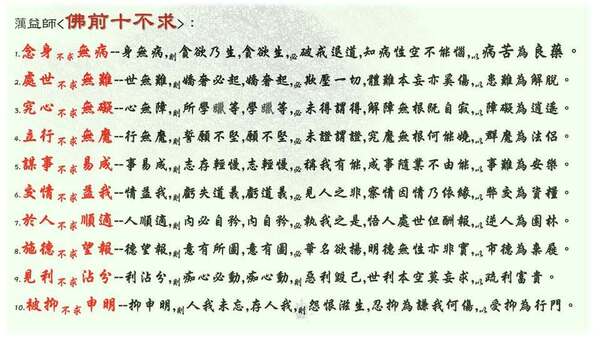 蕅益師<佛前十不求>：
1.念身不求無病--身無病,則貪欲乃生,貪欲生,必破戒退道,知病性空不能惱,以病苦為良藥。
2.處世不求無難--世無難,則嬌奢必起,嬌奢起,必欺壓一切,體難本妄亦奚傷,以患難為解脫。
3.究心不求無障--心無障,則所學躐等,學躐等,必未得謂得,解障無根旣自寂,以障礙為逍遙。
4.立行不求無魔--行無魔,則誓願不堅,願不堅,必未證謂證,究魔無根何能嬈,以群魔為法侶。
5.謀事不求易成--事易成,則志存輕慢,志存輕慢,必稱我有能,成事隨業不由能,以事難為安樂。
6.交情不求益我--情益我,則虧失道義,虧道義,必見人之非,察情因情乃依緣,以弊交為資糧。
7.於人不求順適--人順適,則內必自矜,內自矜,必執我之是,悟人處世但酬報,以逆人為園林。
8.施德不求望報--德望報,則意有所圖,意有圖,必華名欲揚,明德無性亦非實,以市德為棄屣。
9.見利不求沾分--利沾分,則痴心必動,痴心動,則惡利毀己,世利本空莫妄求,以疏利富貴。
10.被抑不求申明--抑申明,則人我未忘,存人我,則怨恨滋生,忍抑為謙我何傷,以受抑為行門。